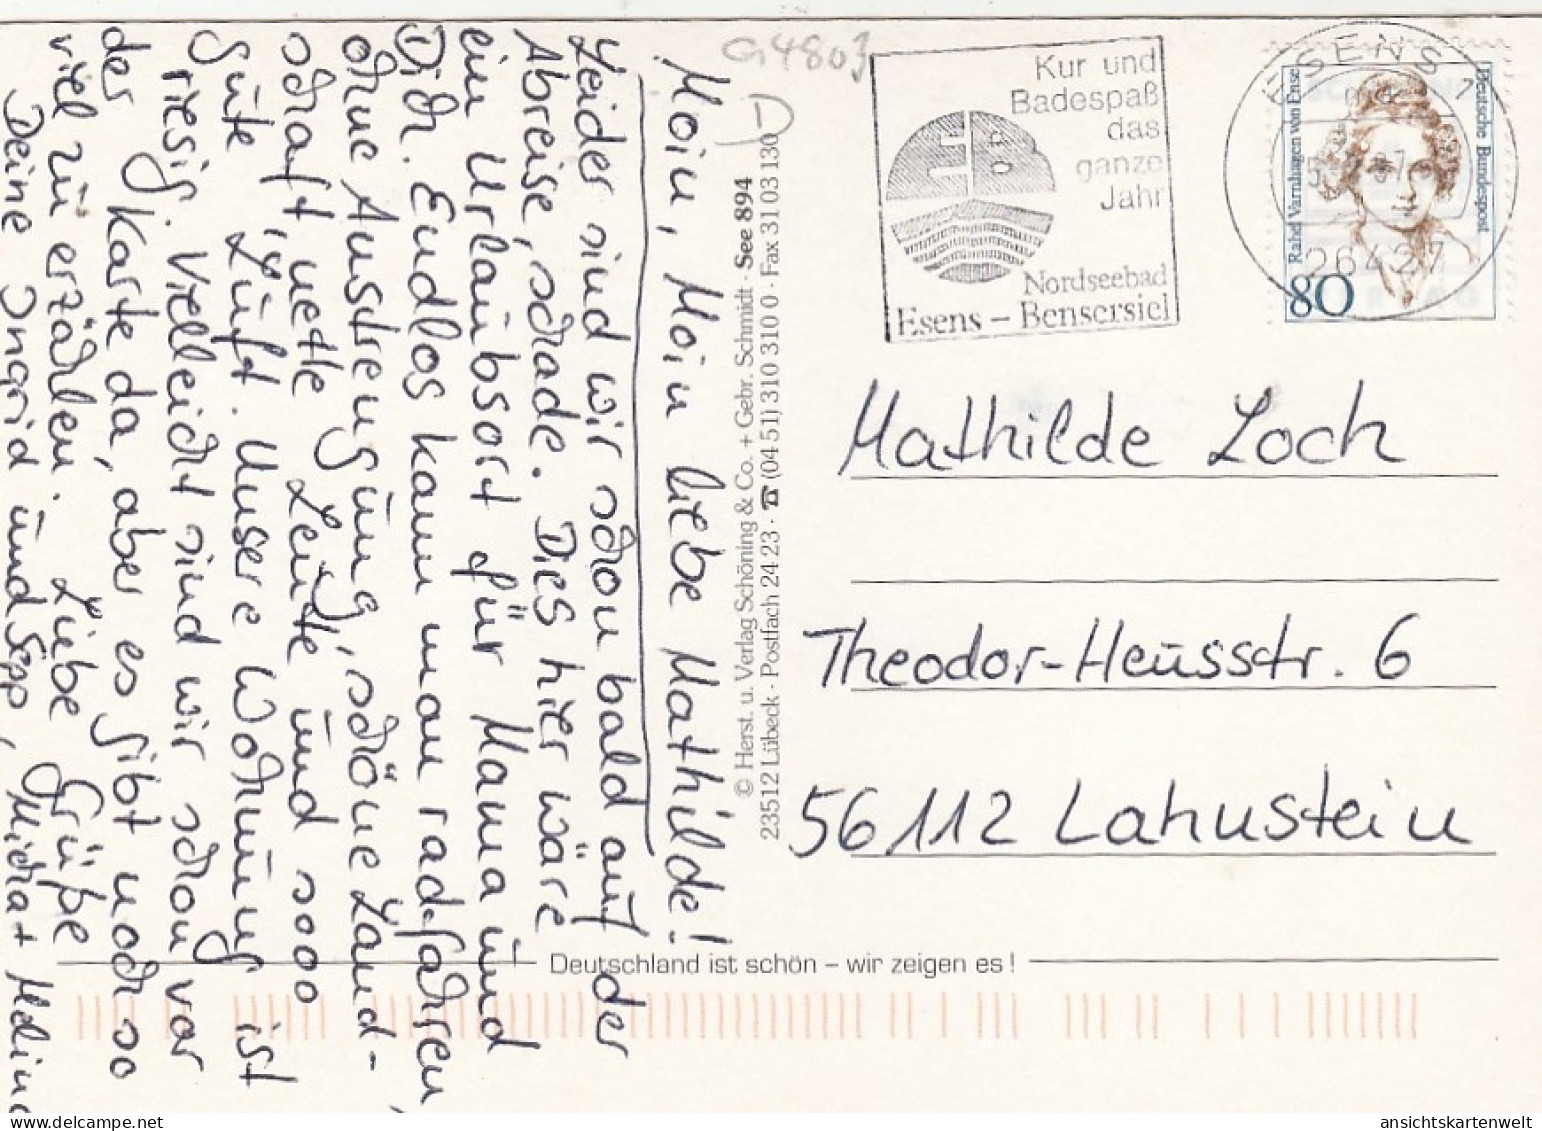 Moin, Moin liebe Mathilde!
Leider sind wir schon bald auf der
Abreise, schade. Dies hier wäre
ein Urlaubsort für Mama und
Dich. Endlos kann man radfahren,
ohne Anstrengung, schöne Land-
schaft, nette Leute und sooo
gute Luft. Unsere Wohnung ist
riesig. Vielleicht sind wir schon vor
der Karte da, aber es gibt noch so
viel zu erzählen. Liebe Grüße
Deine Ingrid und Sepp, Micha +
G4803
© Herst. u. Verlag Schöning & Co. + Gebr. Schmidt · See 894
23512 Lübeck · Postfach 24 23 · ☎ (04 51) 310 310 0 · Fax 31 03 130
Kur und
Badespaß
das
ganze
Jahr
Nordseebad
Esens – Bensersiel
ESENS
26427
Rahel Varnhagen von Ense
Deutsche Bundespost
80
Mathilde Loch
Theodor-Heussstr. 6
56112 Lahnstein
Deutschland ist schön – wir zeigen es!
ansichtskartenwelt